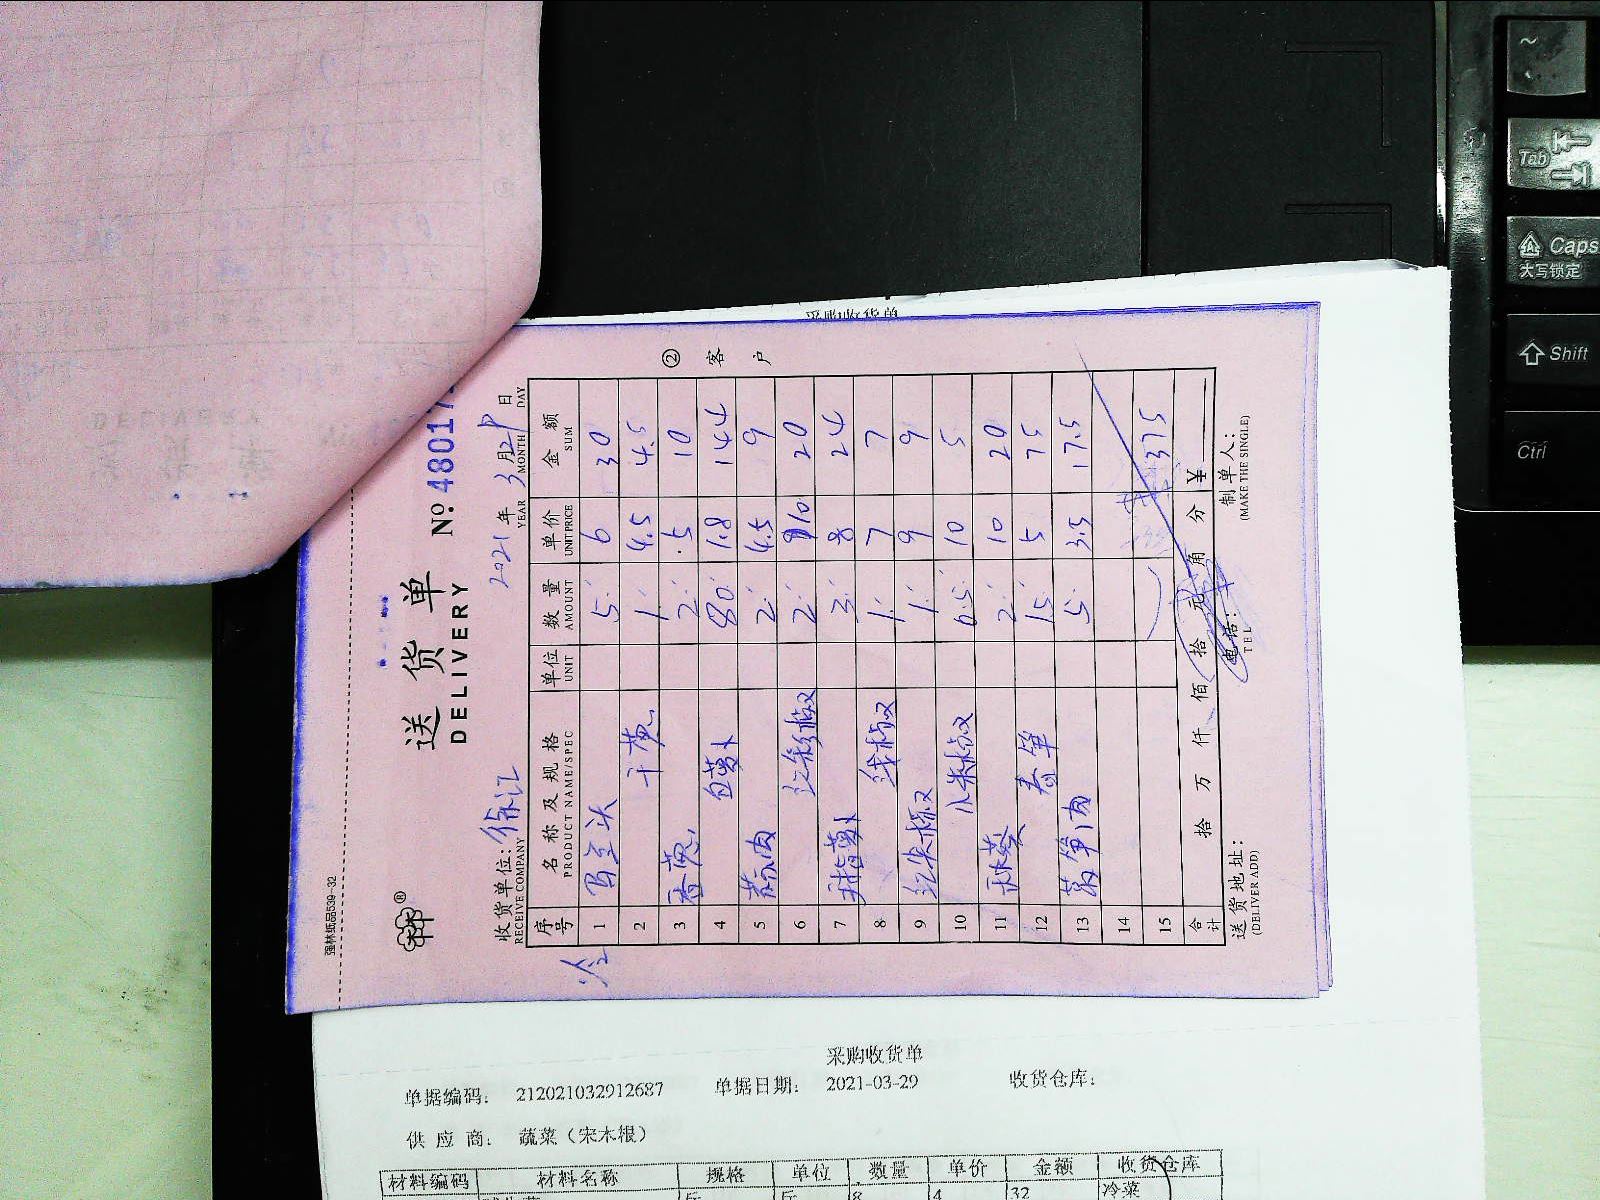 强林纸品539-32
®
送货单
DELIVERY
№ 48017
收货单位: 徐汇
RECEIVE COMPANY
2021年 3月29日
YEAR MONTH DAY
序号 名称及规格 单位 数量 单价 金额
PRODUCT NAME/SPEC UNIT AMOUNT UNIT PRICE SUM
1 5 6 30
2 1 4.5 4.5
3 2 5 10
4 白萝卜 80 1.8 144
5 2 4.5 9
6 2 10 20
7 手指萝卜 3 8 24
8 线椒 1 7 7
9 红尖椒 1 9 9
10 小米椒 0.5 10 5
11 秋葵 2 10 20
12 春笋 15 5 75
13 莴笋 5 3.5 17.5
14
15 375
合计 拾 万 仟 佰 拾 元 角 分 ¥
送货地址: 电话: 制单人:
(DELIVER ADD) TEL (MAKE THE SINGLE)
② 客户
采购收货单
采购收货单
单据编码: 212021032912687 单据日期: 2021-03-29 收货仓库:
供应商: 蔬菜（宋木根）
材料编码 材料名称 规格 单位 数量 单价 金额 收货仓库
斤 斤 8 4 32 冷菜
DELIVERY
~
Tab
Caps
大写锁定
Shift
Ctrl